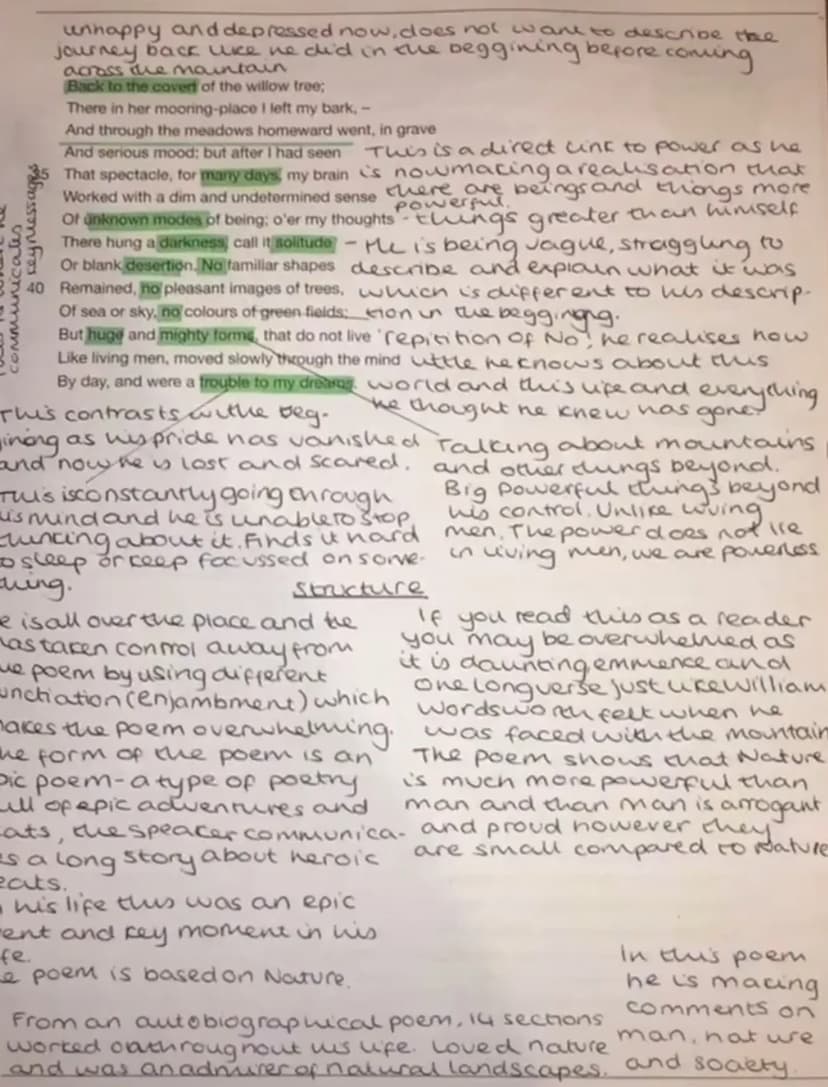 unhappy and depressed now, does not want to describe the
journey back like he did in the beggining before coming
across the mountain
Back to the covert of the willow tree;
There in her mooring-place I left my bark, –
And through the meadows homeward went, in grave
And serious mood; but after I had seen
35 That spectacle, for many days, my brain
Worked with a dim and undetermined sense
Of unknown modes of being; o'er my thoughts
There hung a darkness, call it solitude
Or blank desertion. No familiar shapes
40 Remained, no pleasant images of trees,
Of sea or sky, no colours of green fields;
But huge and mighty forms, that do not live
Like living men, moved slowly through the mind
By day, and were a trouble to my dreams.
This is a direct link to power as he
is now making a realisation that
there are beings and things more
powerful.
- things greater than himself
- He is being vague, straggling to
describe and explain what it was
which is different to his descrip-
tion in the beggining.
'repitition of No' he realises how
little he knows about this
world and this life and everything
he thought he knew has gone.
communicates
key messages
This contrasts w the beg-
ining as his pride has vanished
and now he is lost and scared.
This is constantly going through
is mind and he is unable to stop
about it. Finds it hard
o sleep or keep focussed on some-
hing.
Talking about mountains
and other things beyond.
Big Powerful things beyond
his control. Unlike living
men. The power does not lie
in living men, we are powerless
Structure
e is all over the place and he
has taken control away from
he poem by using different
unctiation (enjambment) which
makes the poem overwhelming.
he form of the poem is an
pic poem - a type of poetry
ull of epic adventures and
ats, the speaker communica-
es a long story about heroic
eats.
his life this was an epic
ent and key moment in his
fe.
e poem is based on Nature.
If you read this as a reader
you may be overwhelmed as
it is daunting emmence and
one long verse just like William
Wordsworth felt when he
was faced with the mountain
The poem shows that Nature
is much more powerful than
man and than man is arrogant
and proud however they
are small compared to Nature
From an autobiographical poem, 14 sections
worked on throughout his life. Loved nature
and was an admirer of natural landscapes.
In this poem
he is making
comments on
man, nature
and society.